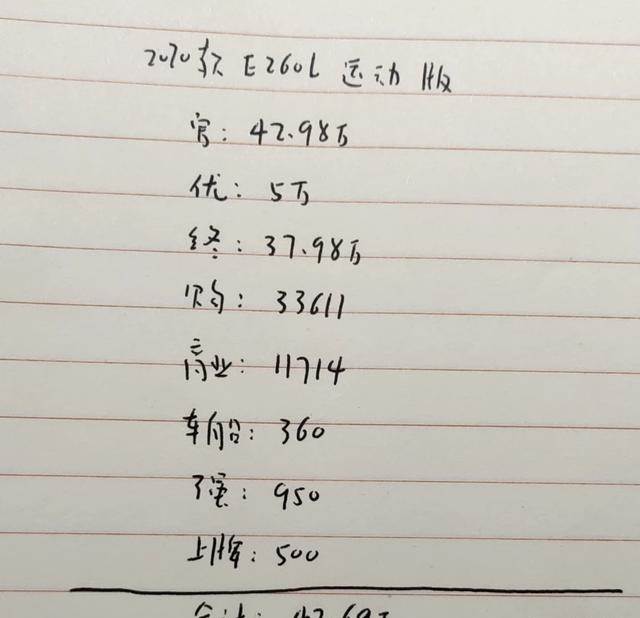 2020款 E260L 运动版
官: 42.98万
优: 5万
终: 37.98万
购: 33611
商业: 11714
车船: 360
强: 950
上牌: 500
合计: 42.69万